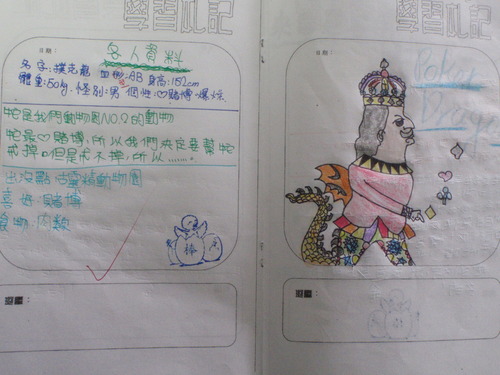 學習札記
日期：
各人資料
名字:撲克龍 血型:AB 身高:152cm
體重:50勻.怪別:男 個性:心賭博.爆棕
牠是我們動物園NO.2的動物
牠是♡賭博,所以我們決定要幫牠
戒掉。但是戒不掉,所以......。
出沒點:古靈精動物園
喜好:賭博
食物:肉類
棒
學習札記
日期：
Poker
Drag